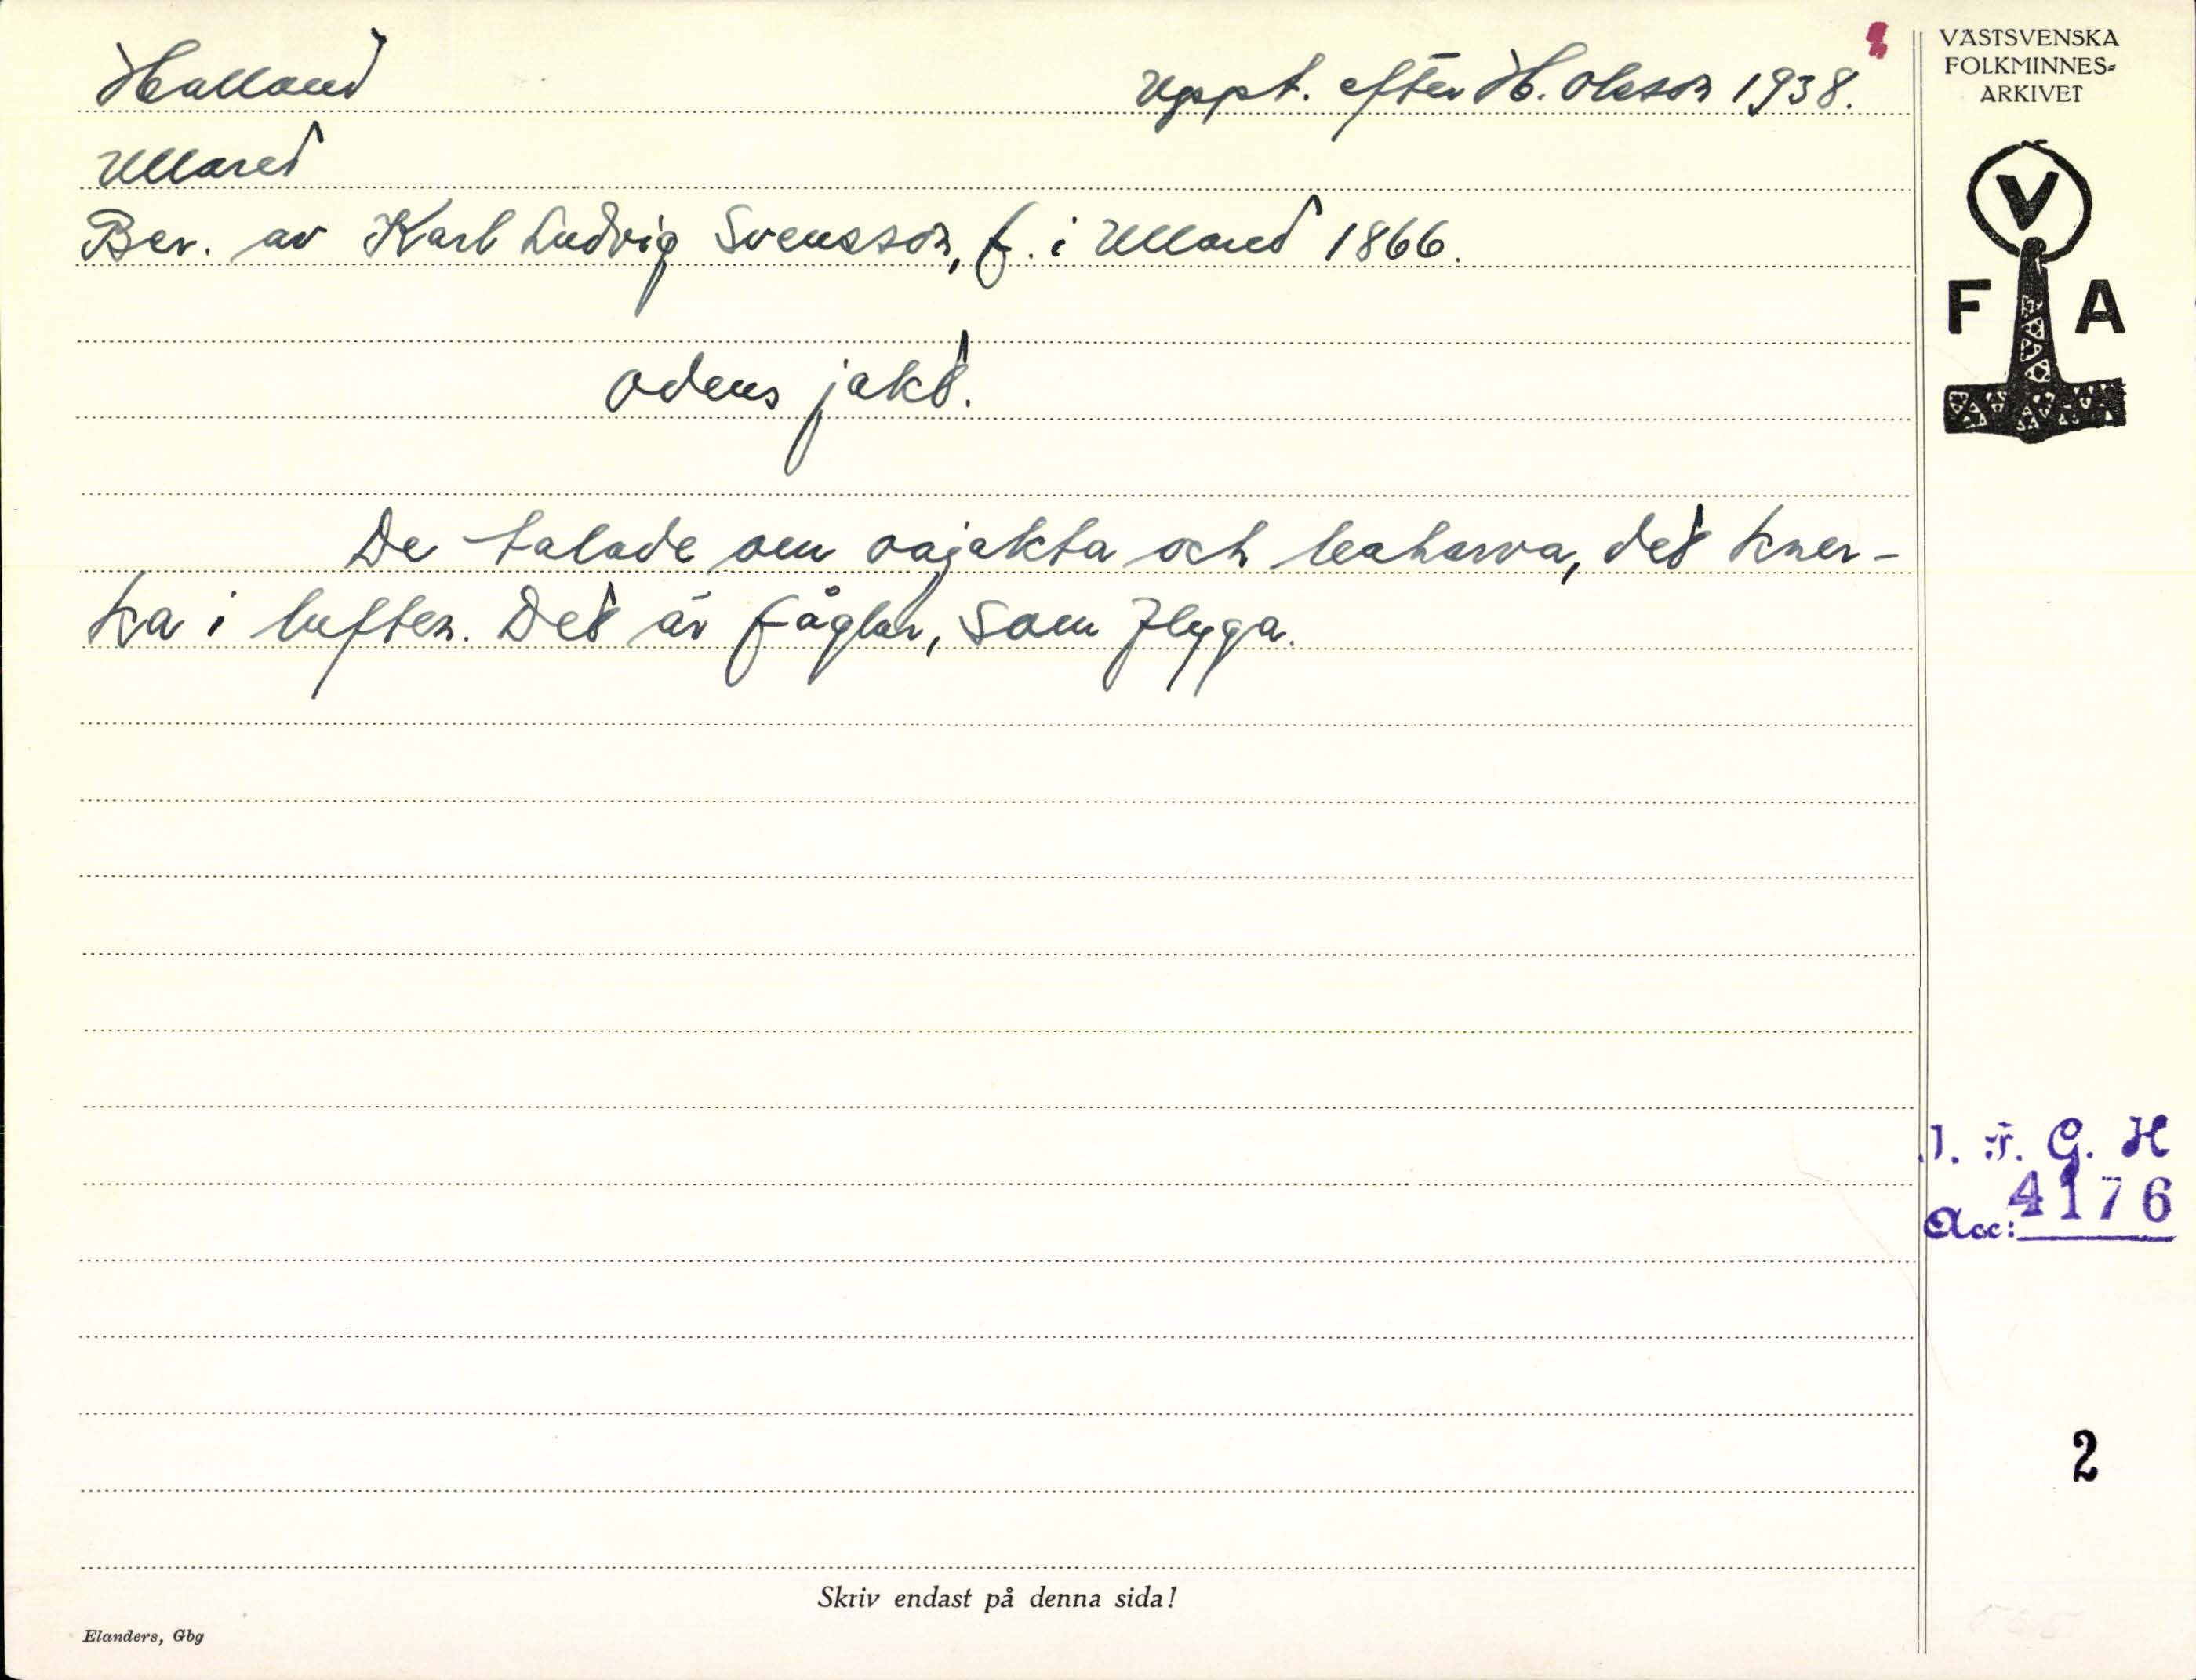 Halland
Uppt. efter H. Olsson 1938.
VÄSTSVENSKA
FOLKMINNES-
ARKIVET
Ullared
V
Ber. av Karl Ludvig Svensson, f. i Ullared 1866.
F A
Odens jakt.
De talade om oajakta och leaharva, det kner-
ka i luften. Det är fåglar, som flyga.
I. F. G. H
Acc: 4176
2
Skriv endast på denna sida!
Elanders, Gbg